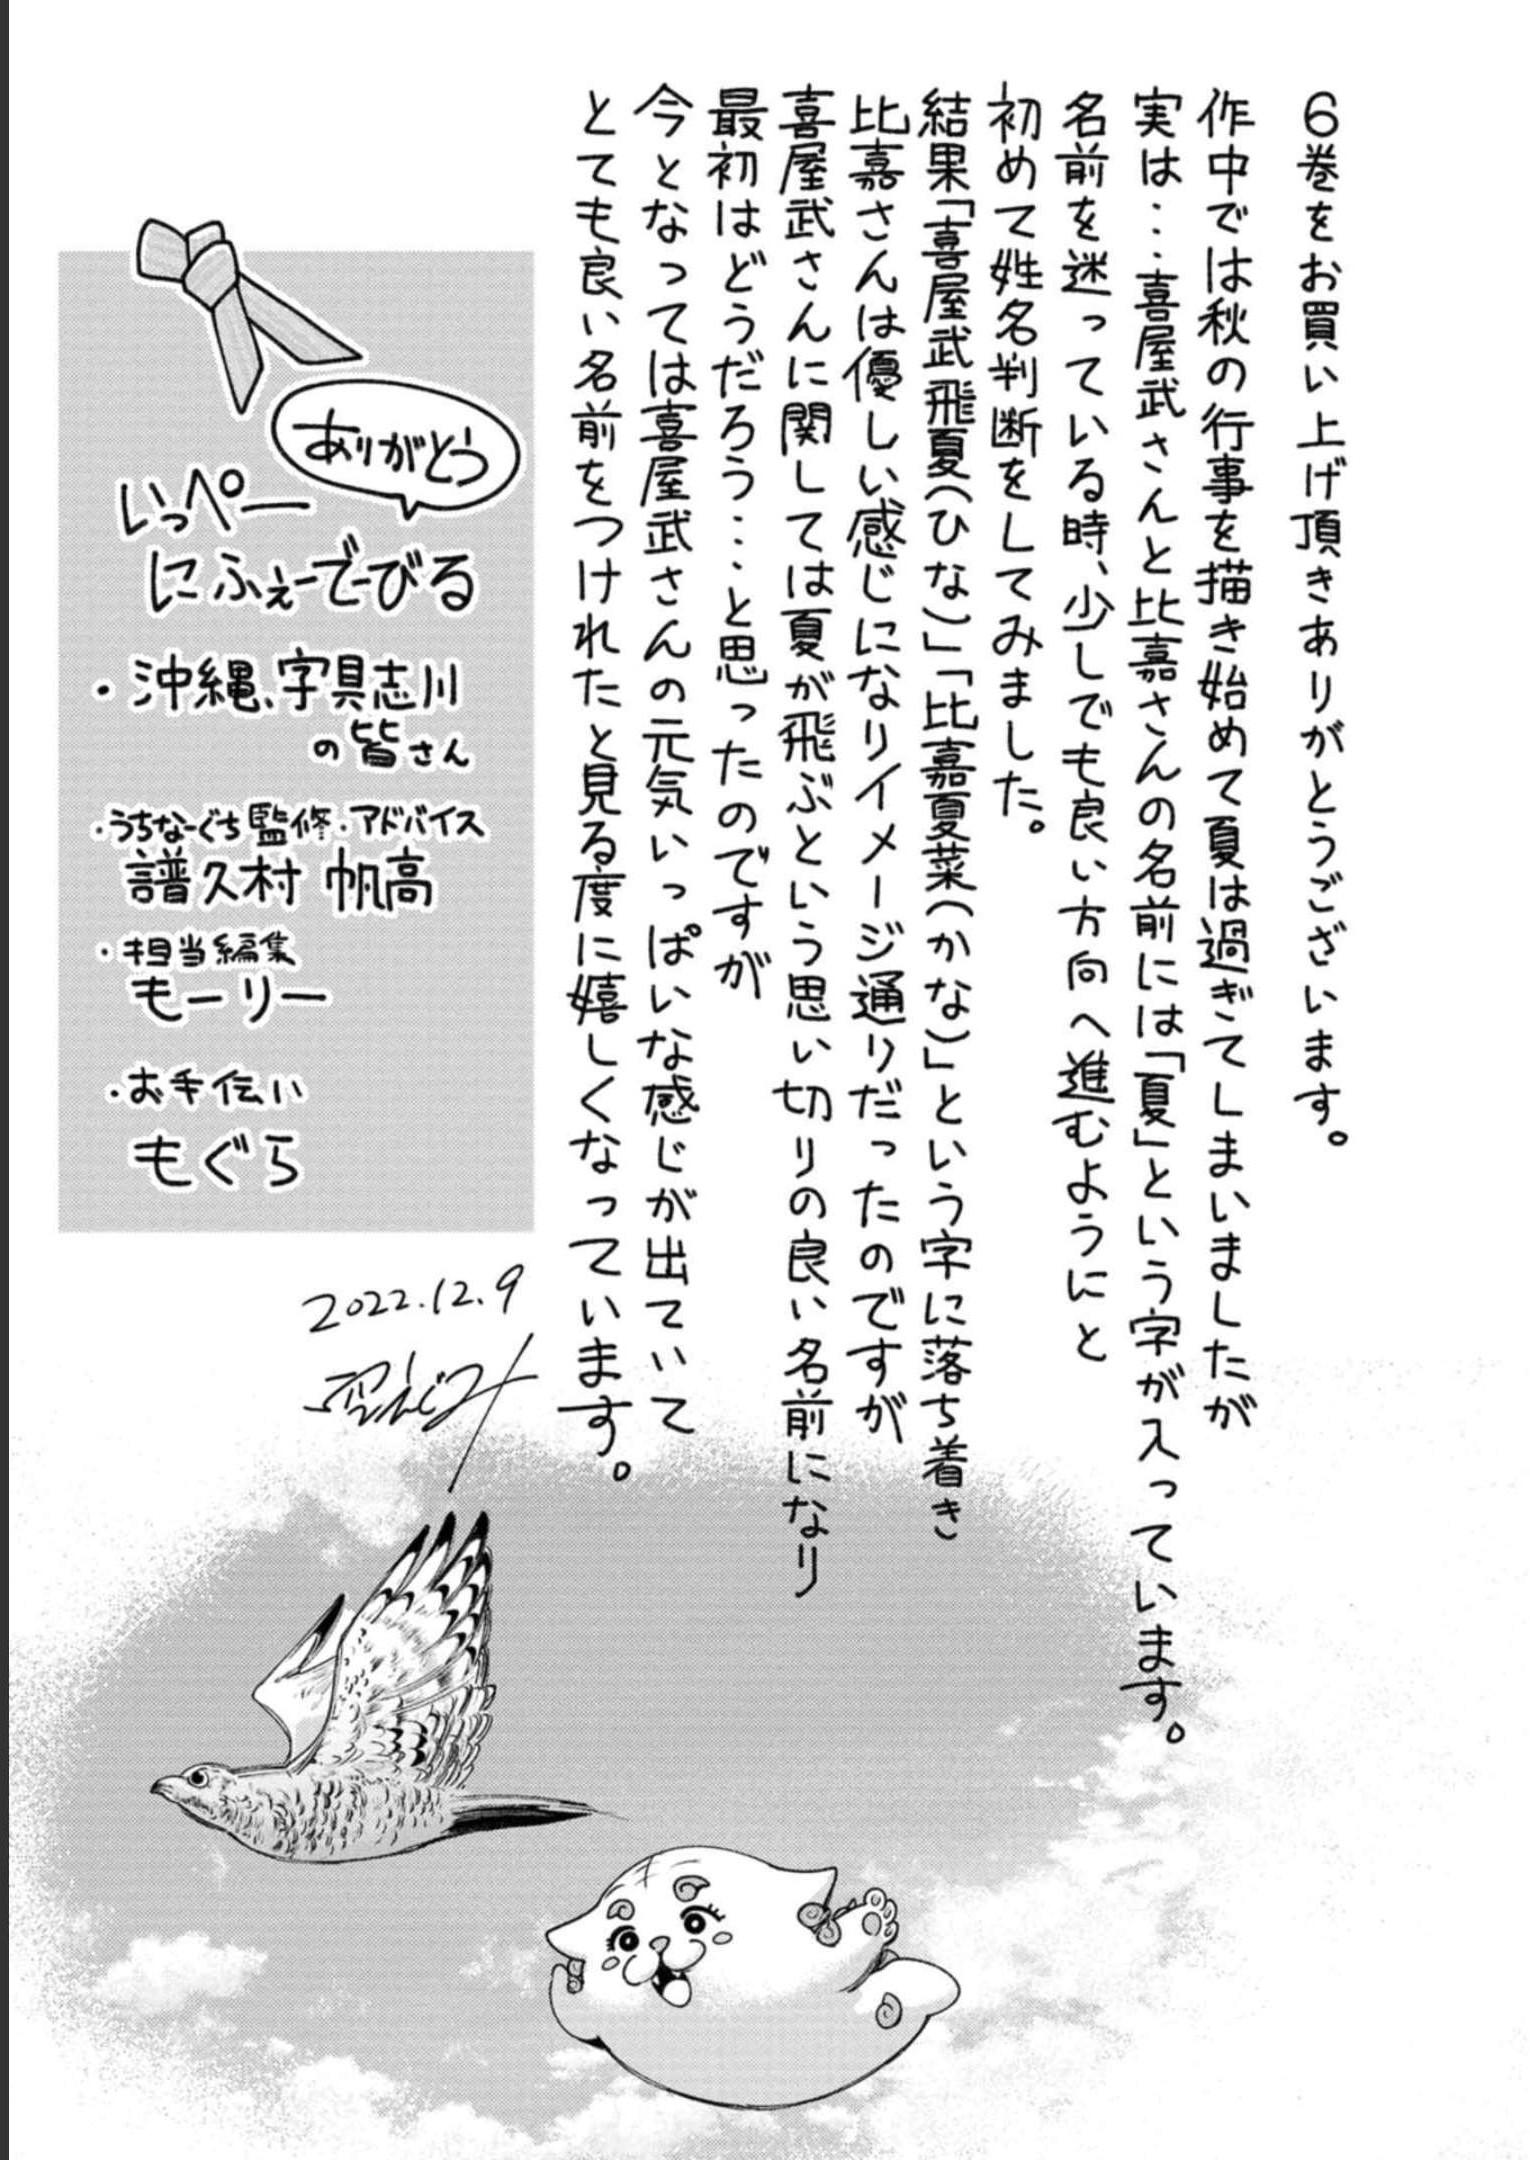 6巻をお買い上げ頂きありがとうございます。
作中では秋の行事を描き始めて夏は過ぎてしまいましたが
実は...喜屋武さんと比嘉さんの名前には「夏」という字が入っています。
名前を迷っている時、少しでも良い方向へ進むようにと
初めて姓名判断をしてみました。
結果「喜屋武飛夏(ひな)」「比嘉夏菜(かな)」という字に落ち着き
比嘉さんは優しい感じになりイメージ通りだったのですが
喜屋武さんに関しては夏が飛ぶという思い切りの良い名前になり
最初はどうだろう...と思ったのですが
今となっては喜屋武さんの元気いっぱいな感じが出ていて
とても良い名前をつけれたと見る度に嬉しくなっています。
ありがとう
いっぺー
にふぇーでーびる
・沖縄、字具志川
の皆さん
・うちなーぐち監修・アドバイス
譜久村 帆高
・担当編集
もーりー
・お手伝い
もぐら
2022.12.9